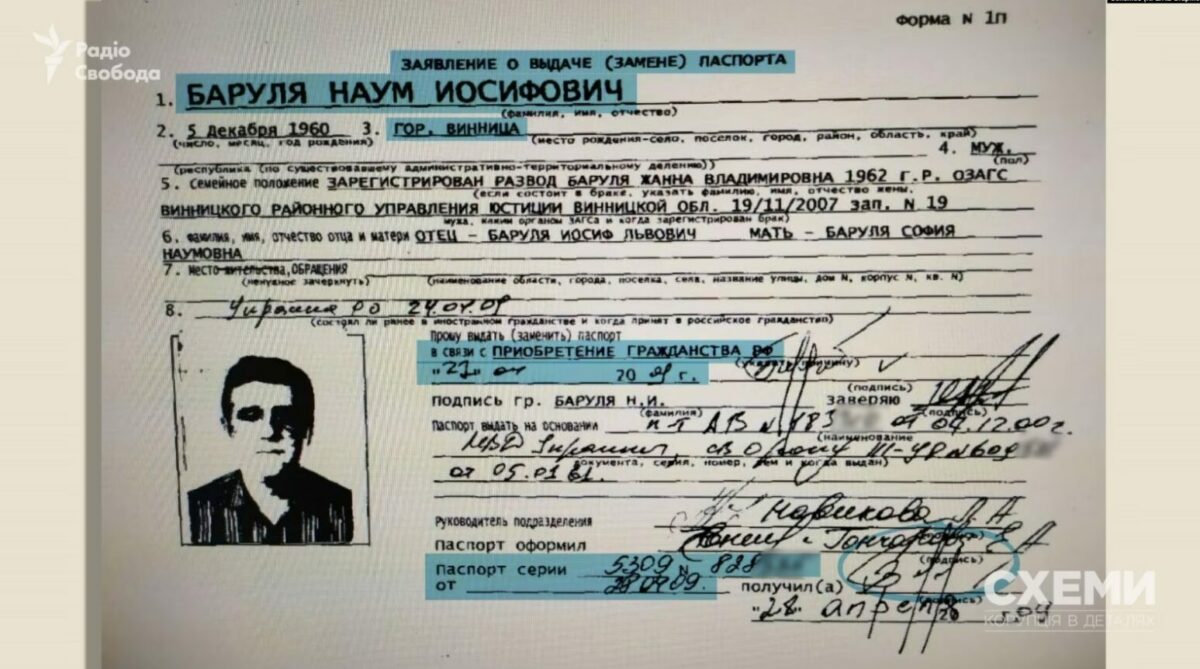 Радіо
Свобода
Форма N 1П
ЗАЯВЛЕНИЕ О ВЫДАЧЕ (ЗАМЕНЕ) ПАСПОРТА
1. БАРУЛЯ НАУМ ИОСИФОВИЧ
(фамилия, имя, отчество)
2. 5 декабря 1960 3. ГОР. ВИННИЦА
(число, месяц, год рождения) (место рождения-село, поселок, город, район, область, край)
4. МУЖ.
(республика (по существовавшему административно-территориальному делению)) (пол)
5. Семейное положение ЗАРЕГИСТРИРОВАН РАЗВОД БАРУЛЯ ЖАННА ВЛАДИМИРОВНА 1962 Г.Р. ОЗАГС
(если состоит в браке, указать фамилию, имя, отчество жены,
ВИННИЦКОГО РАЙОННОГО УПРАВЛЕНИЯ ЮСТИЦИИ ВИННИЦКОЙ ОБЛ. 19/11/2007 зап. N 19
мужа, каким органом ЗАГСа и когда зарегистрирован брак)
6. Фамилия, имя, отчество отца и матери ОТЕЦ - БАРУЛЯ ИОСИФ ЛЬВОВИЧ МАТЬ - БАРУЛЯ СОФИЯ
НАУМОВНА
7. Место жительства, ОБРАЩЕНИЯ
(ненужное зачеркнуть) (наименование области, города, поселка, села, название улицы, дом N, корпус N, кв. N)
8. Украина до 24.04.09
(состоял ли ранее в иностранном гражданстве и когда принят в российское гражданство)
Прошу выдать (заменить) паспорт
в связи с ПРИОБРЕТЕНИЕ ГРАЖДАНСТВА РФ
(указать причину)
"27" 04 20 09 г.
(подпись)
Подпись гр. БАРУЛЯ Н.И. заверяю
(фамилия) (подпись)
Паспорт выдать на основании п-т АВ N 183 от 04.12.00г.
(наименование
МВД Украины, св о рожд III- N609
документа, серия, номер, кем и когда выдан)
от 05.01.61.
Руководитель подразделения Новикова Л А
Паспорт оформил
(подпись)
Паспорт серии 5309 N 828
от 28.04.09. получил(а)
(подпись)
"28" апреля 20 09
СХЕМИ
КОРУПЦІЯ В ДЕТАЛЯХ